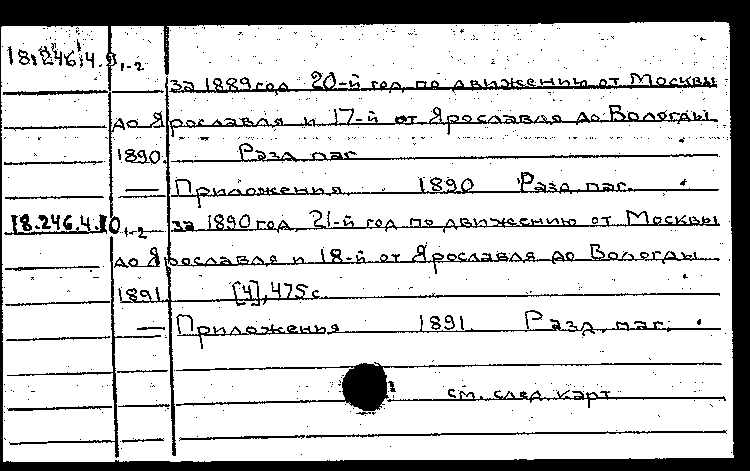 18.246.4.9,1-2
за 1889 год 20-й год по движению от Москвы
до Ярославля и 17-й от Ярославля до Вологды.
1890. Разд. паг.
— Приложения. 1890 Разд. паг.
18.246.4.10,1-2 за 1890 год, 21-й год по движению от Москвы
до Ярославля и 18-й от Ярославля до Вологды.
1891. [4], 475 с.
— Приложения 1891. Разд. паг.
см. след. карт.